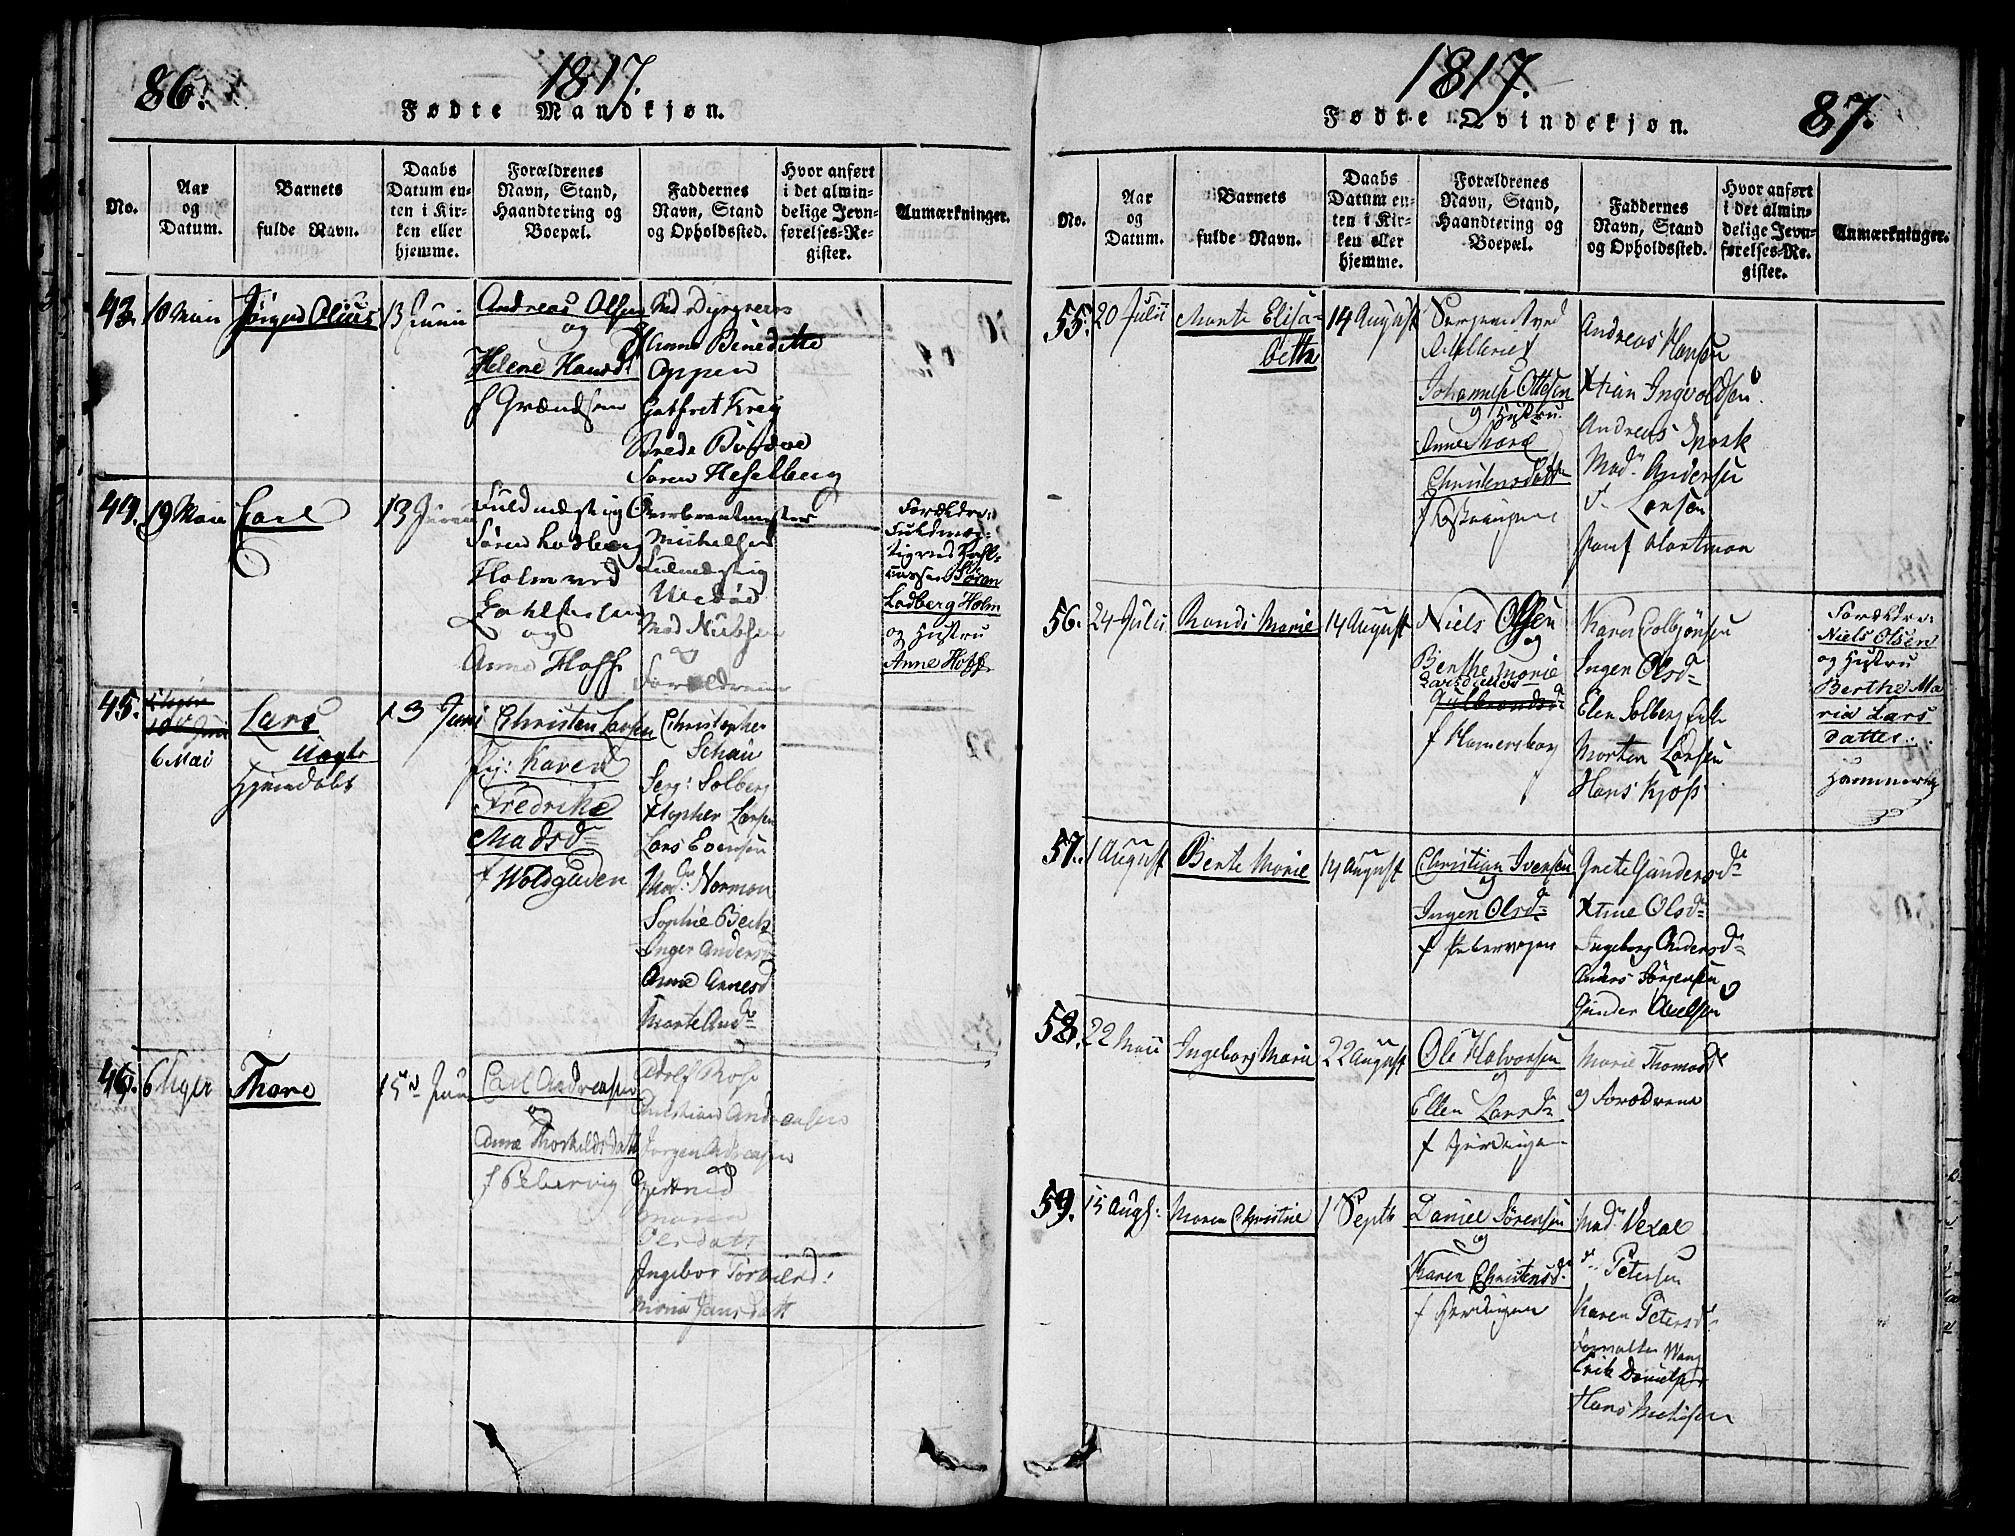 86.
1817.
Fødte Mandkjøn.
No.
Aar
og
Datum.
Barnets
fulde Navn.
Daabs
Datum en-
ten i Kir-
ken eller
hjemme.
Forældrenes
Navn, Stand,
Haandtering og
Boepæl.
Faddernes
Navn, Stand
og Opholdssted.
Hvor anført
i det almin-
delige Jevn-
førelses-Re-
gister.
Anmærkninger.
43.
10 Maii
Jörgen Olius
13 Junii
Andreas Olsen
og
Helene Hansd
Anna Benedicte
Oppen
Gotfret Krey
Sören Heselberg
44.
19 Maii
Carl
13 Junii
Fuldmægtig
Sören Lodberg
Holm ved
og
Anne Hoff
Overbrantmester
Michelsen
Fulmægtig
og
Forældrene
Forældre:
Fuldmæg-
Sören
Lodberg Holm
og Hustru
Anne Hoff
45.
6 Mai
Lars
13 Juni
Christen Larsen
Karen
Fredrike
Madsd
f Woldgaden
Christopher
Schau
Serg: Solberg
Xtopher Larsen
Lars Evensen
Mad: Norman
Sophie Beck
Inger Andersd
Anne Annesd
Marte And
46.
Thore
15 Juni
Carl Andreasen
og
Anne Thorkeldsdatt
f Pebervig
Adolf Rose
Christian Andreasen
Jorgen Andreasen
Maren
Olsdatt
Ingebor Torkield:
Maria Jansdatt
1817.
87.
Fødte Qvindekjøn.
No.
Aar
og
Datum.
Barnets
fulde Navn.
Daabs
Datum en-
ten i Kir-
ken eller
hjemme.
Forældrenes
Navn, Stand,
Haandtering og
Boepæl.
Faddernes
Navn, Stand
og Opholdssted.
Hvor anført
i det almin-
delige Jevn-
førelses-Re-
gister.
Anmærkninger.
55.
20 Julii
Marte Elisa-
beth
14 August
Sergeant ved
Johannes Ottesen
og Hustru
Anne Marie
Christensdatt
Andreas Hansen
Xtian Ingvoldsen
Andreas Mork
Mad. Andersen
Larsen
Hartman
56.
24 Julii
Randi Marie
14 August
Niels Olsen
og
Berthe Marie
Larsdatter
Gulbrandsd
f Hamersborg
Karen Colbjönsen
Ingen Olsd
Elen Solberg
Morten Larsen
Hans Kjos
Forældre:
Niels Olsen
og Hustru
Berthe Ma
ria Lars
datter.
57.
1 August
Berte Marie
14 August
Christian Ivensen
og
Ingen Olsd
f Pebervigen
Grete Gundersd
Xtine Olsd
Ingeborg Andersd
Anders Jörgensen
Gunder Axelsen
58.
22 Maii
Ingeborg Marie
22 August
Ole Halvorsen
og
Ellen Larsd
Marie Thomasd
og Forældrene
59.
15 Aug:
Maren Christine
1 Septb
Daniel Sörensen
og
Karen Christensd
Petersen
Karen Petersd
Forvalter Wang
Erik Danielsen